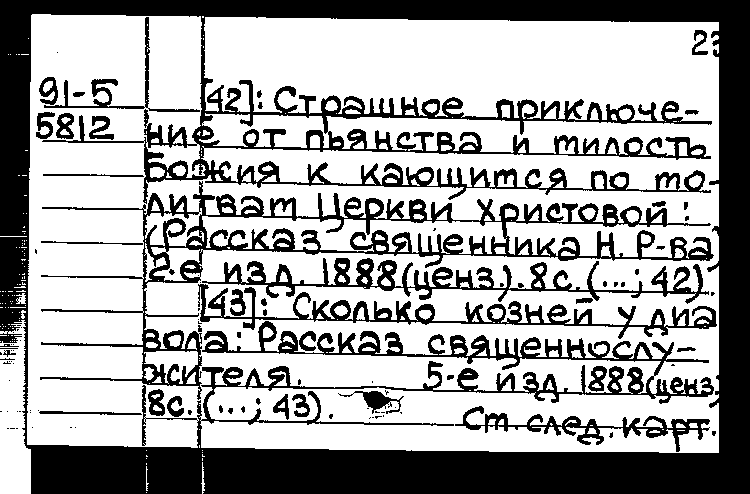 23
91-5 [42]: Страшное приключе-
5812 ние от пьянства и милость
Божия к кающимся по мо-
литвам Церкви Христовой:
(Рассказ священника Н. Р-ва)
2-е изд. 1888(ценз.). 8с. (...; 42).
[43]: Сколько козней у диа
вола: Рассказ священнослу-
жителя. 5-е изд. 1888(ценз.
8с. (...; 43).
См. след. карт.